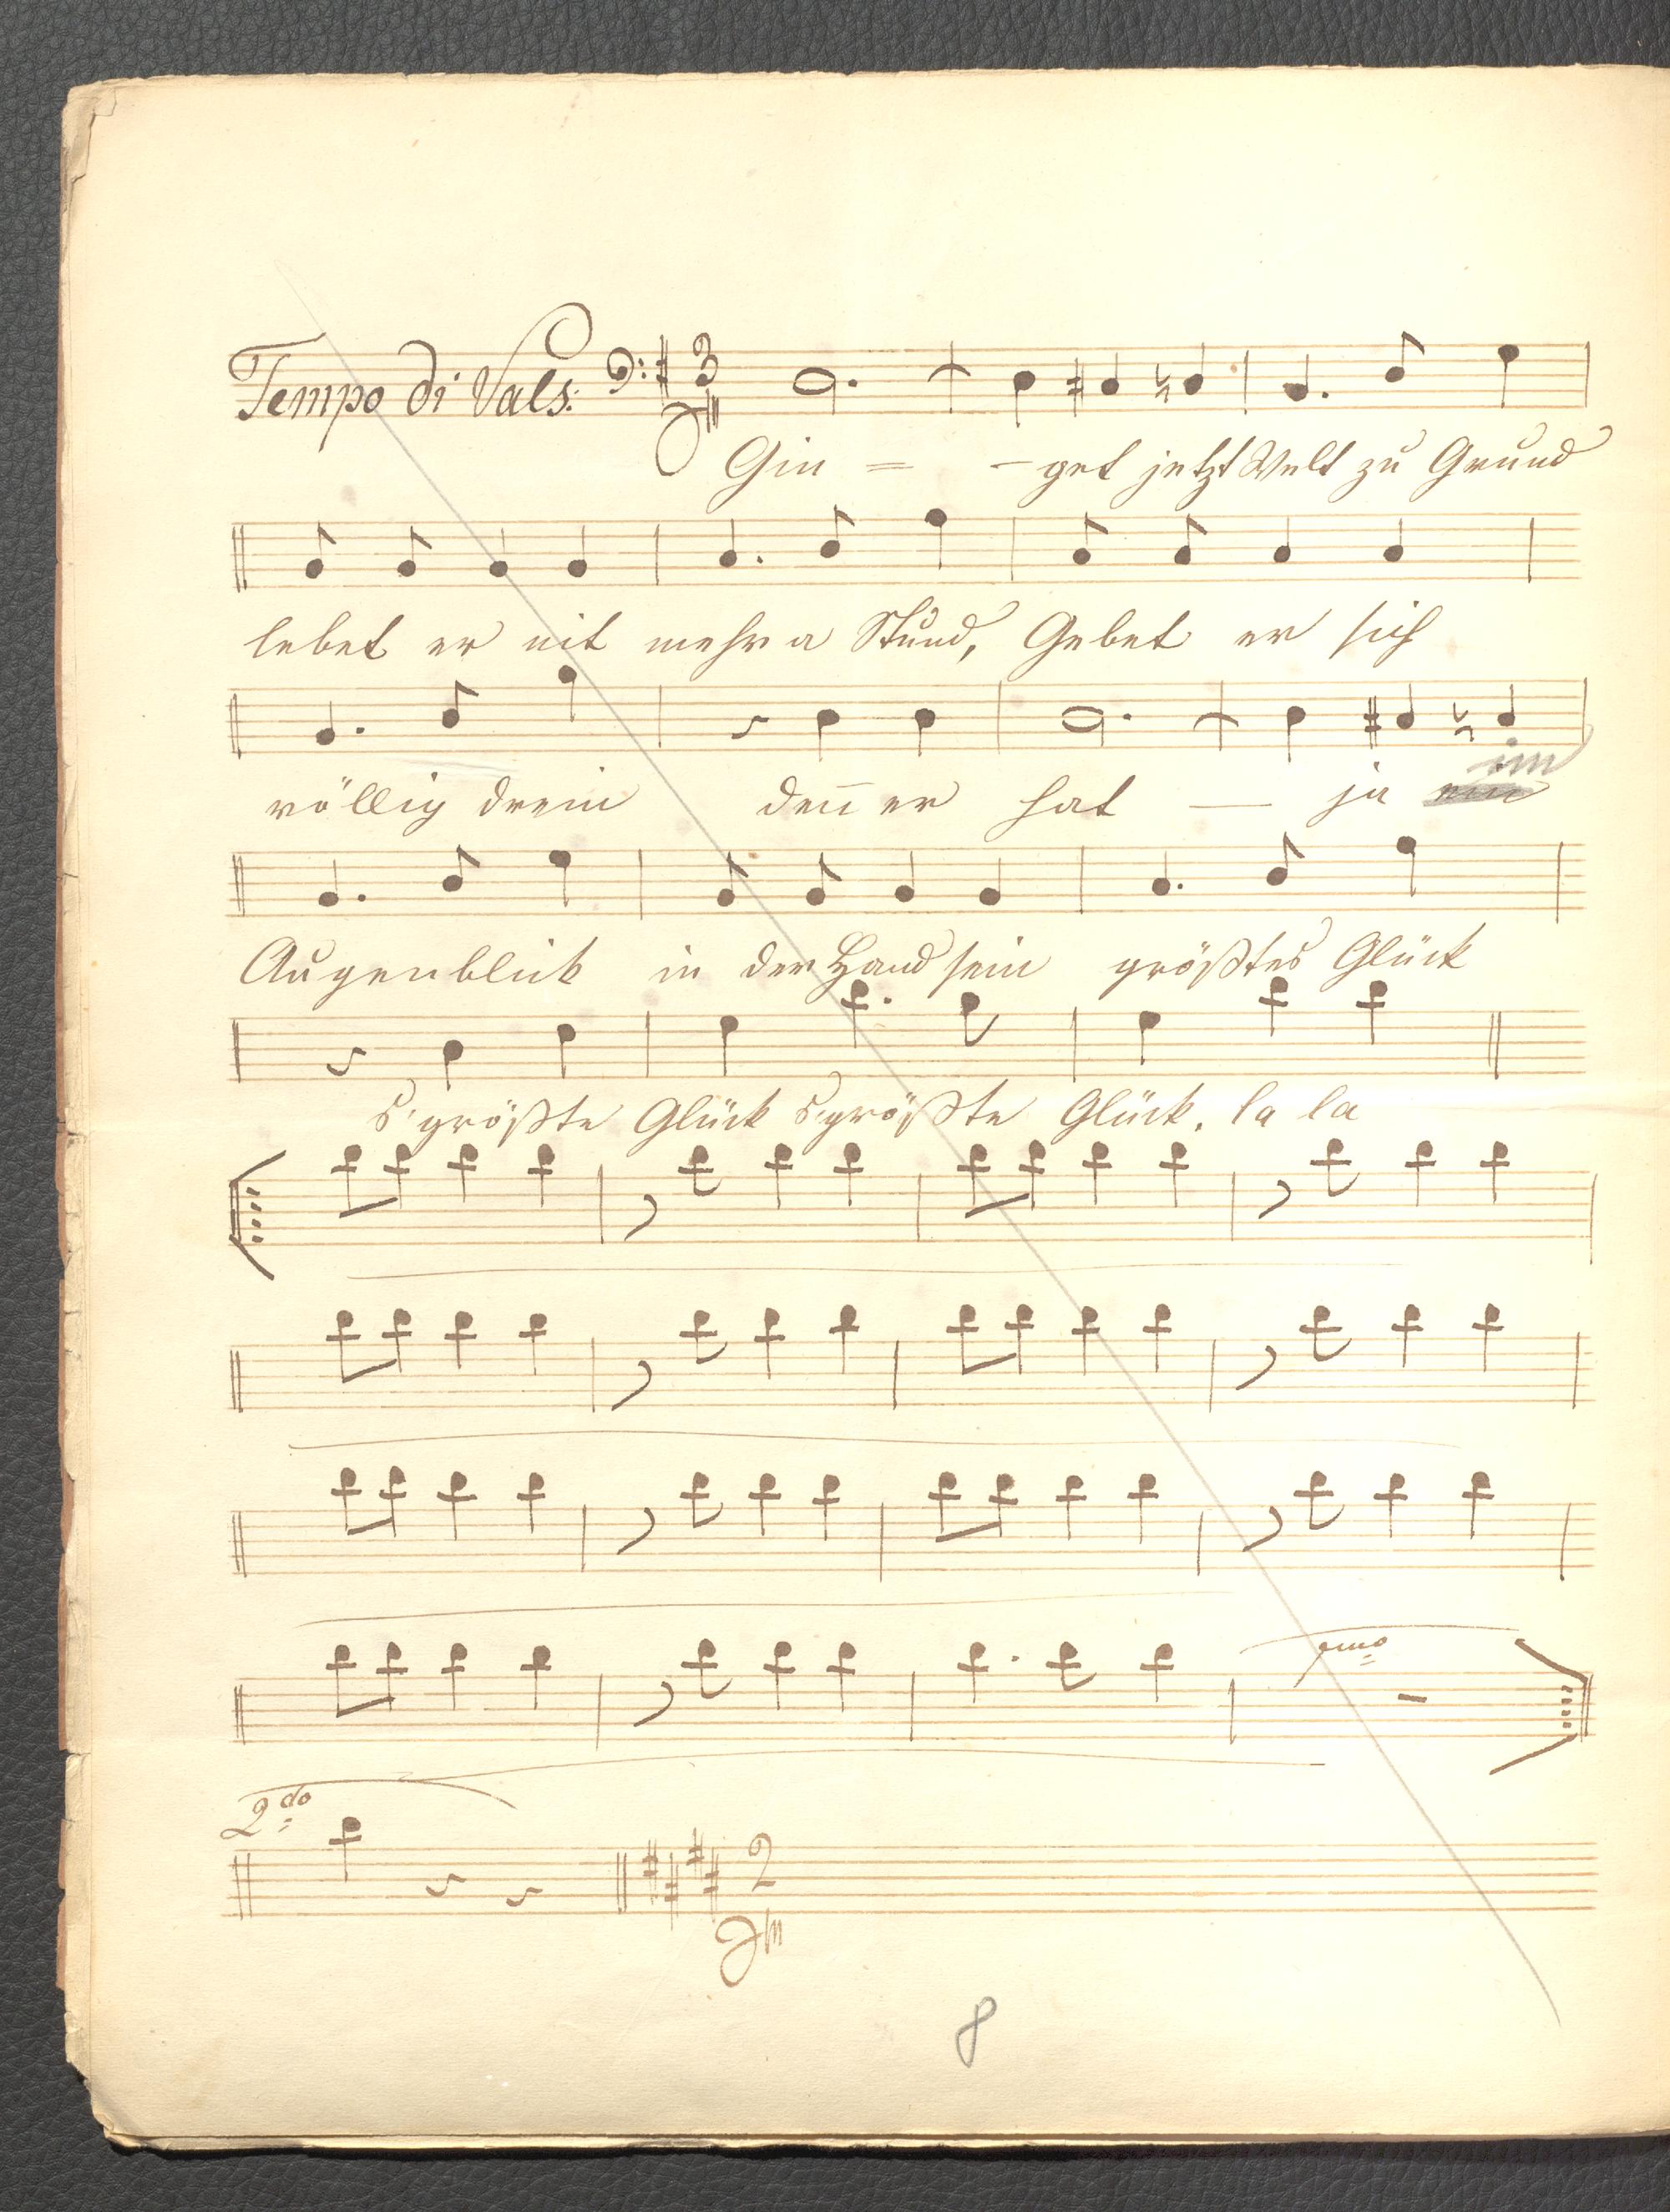 Tempo di Vals: 3
Gin = - get jetzt Welt zu Grund
lebet er nit mehr a Stund, Gebet er sich
völlig drein den̅ er hat — ja ein im
Augenblick in der Hand sein größtes Glück
s'größte Glück s'größte Glück. la la
pmo
2do
2
8